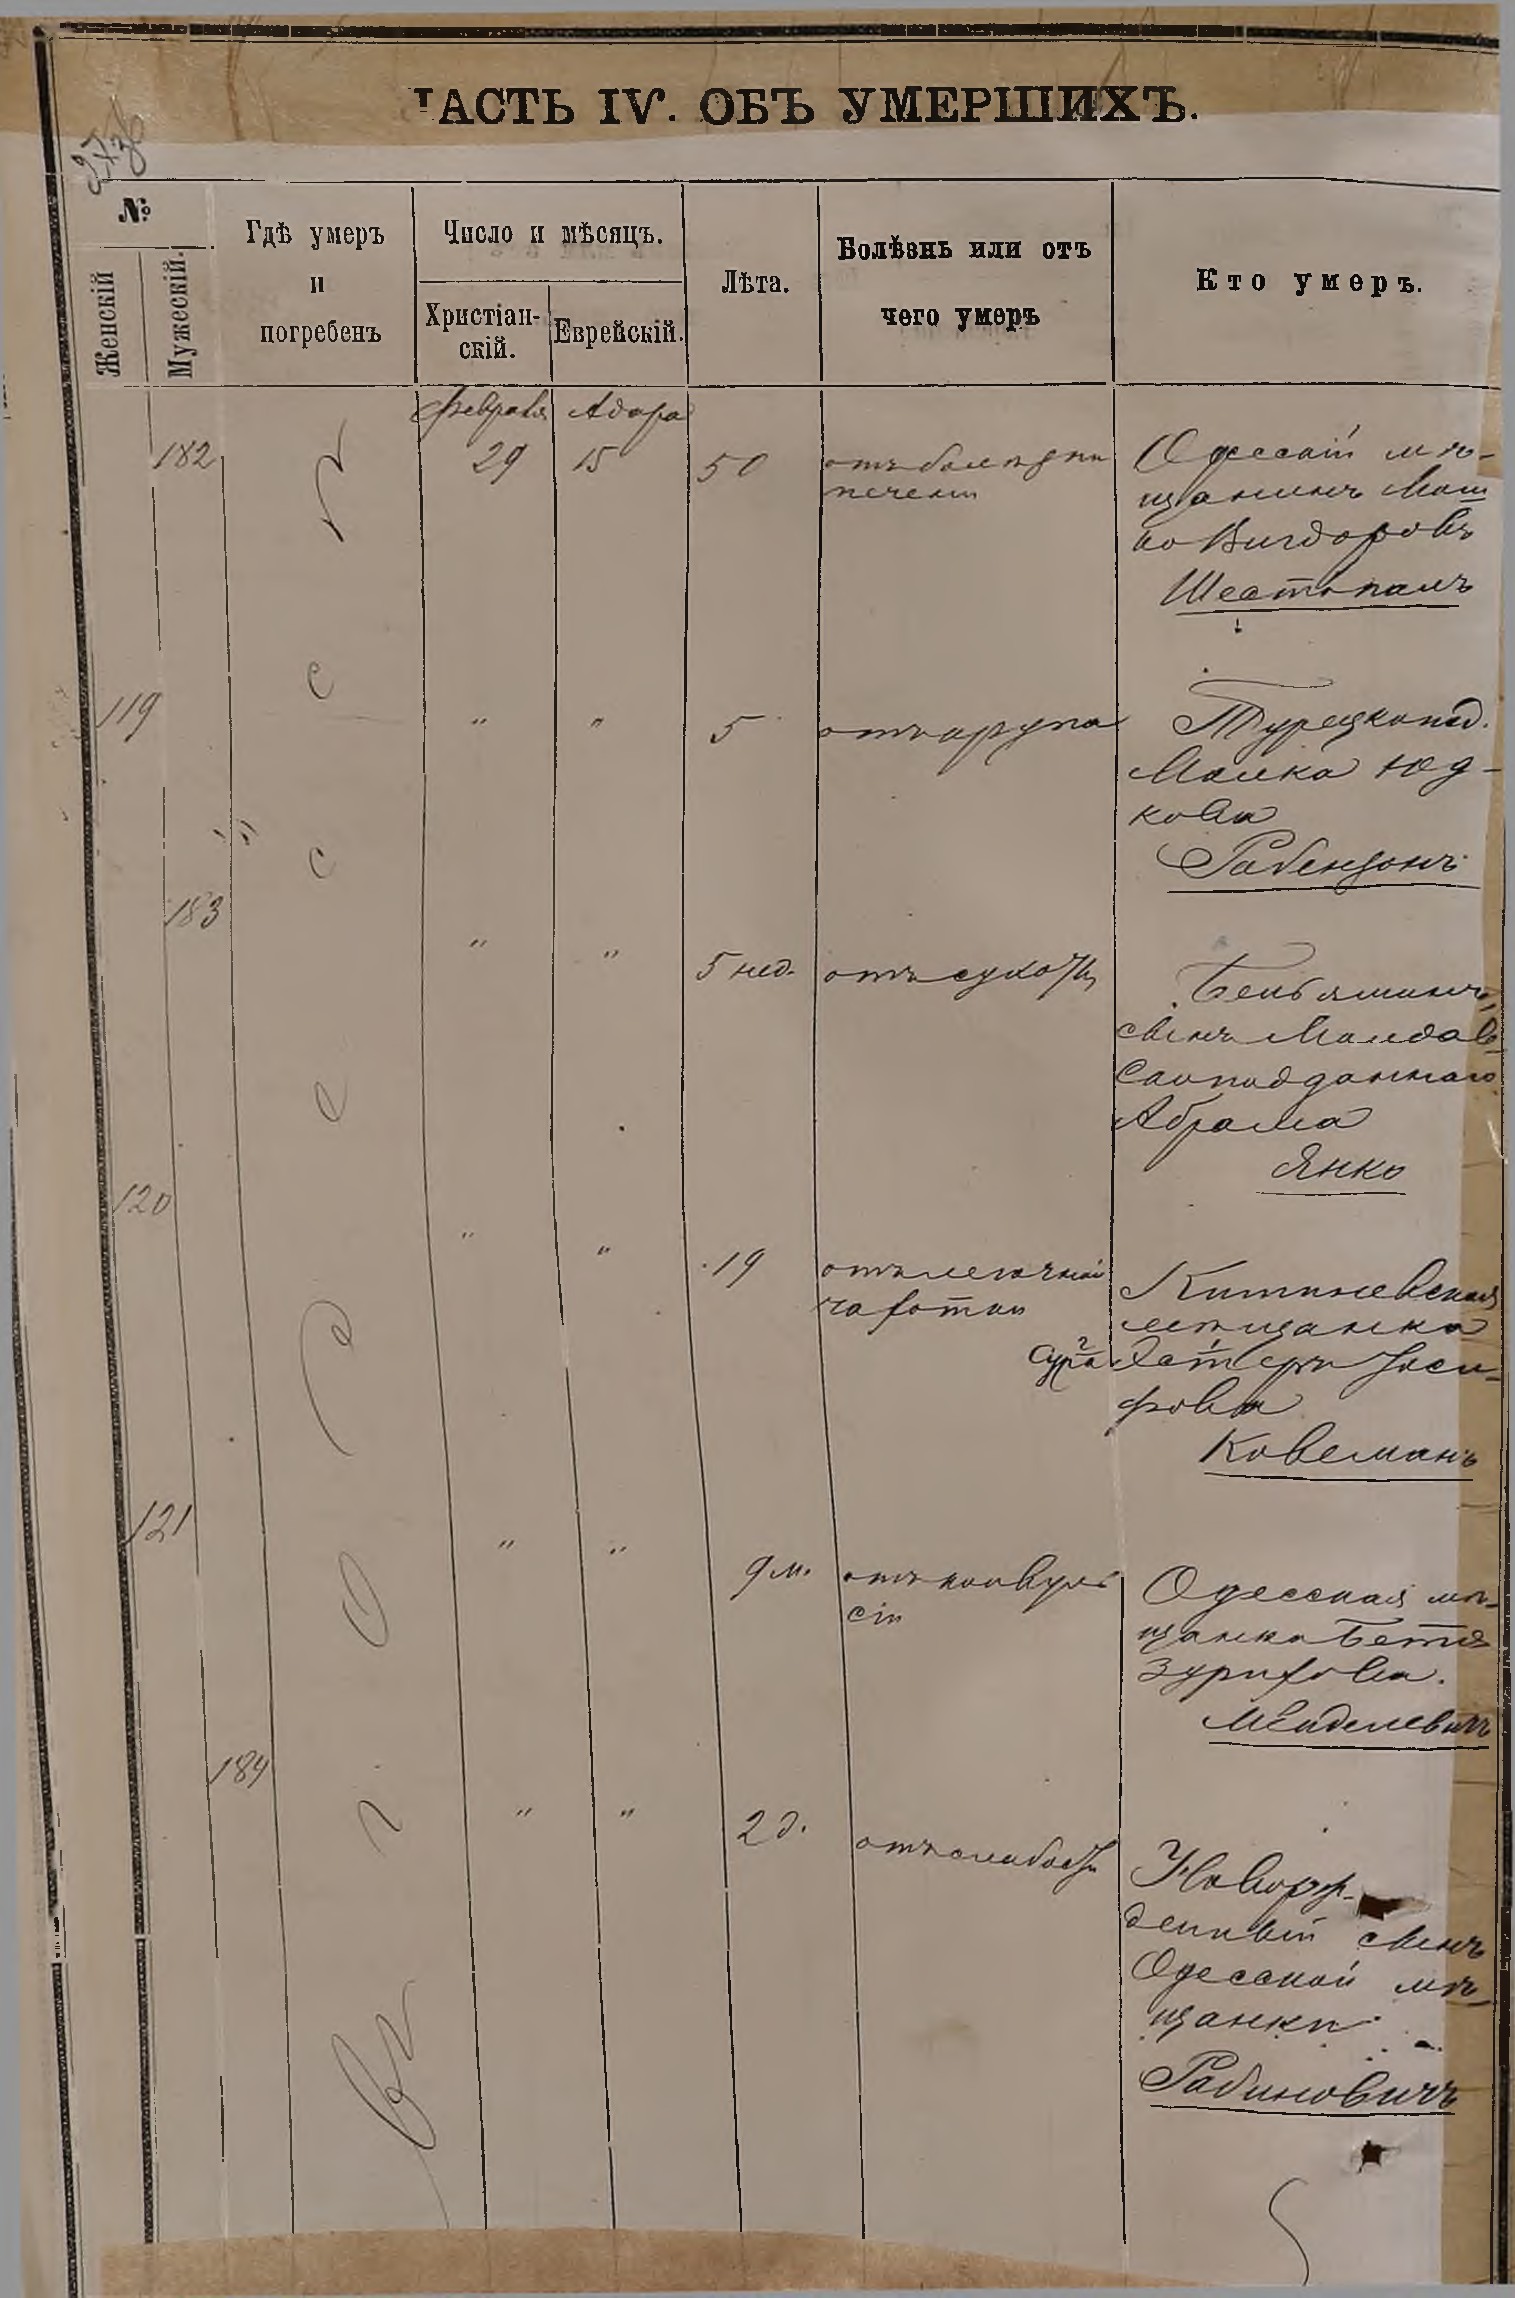 ЧАСТЬ IV. ОБЪ УМЕРШИХЪ.
№
Женскій
Мужескій.
Гдѣ умеръ
и
погребенъ
Число и мѣсяцъ.
Христіан-
скій.
Еврейскій.
Лѣта.
Болѣзнь или отъ
чего умеръ
Кто умеръ.
Въ г. Одессѣ
Февраля Адара
182 29 15 50 отъ болѣзни
печени
Одесскій мѣ-
щанинъ Мош
ко Вигдоровъ
Шестопалъ
119 " " 5 отъ крупа
Турецкопод.
Малка Юд-
кова
Рабензонъ
183 " " 5 нед. отъ сухоты
Беньяминъ,
сынъ Молдав-
скоподданнаго
Абрама
Янко
120 " " 19 отъ легочной
чахотки
Кишиневская
мѣщанка
Сура Эстеръ Іоси-
фова
Ковельманъ
121 " " 9 м. отъ конвуль
сіи
Одесская мѣ-
щанка Бетя
Зурихова.
Менделевичъ
184 " " 2 д. отъ слабости
Новорож-
денный сынъ
Одесской мѣ-
щанки
Рабиновичъ